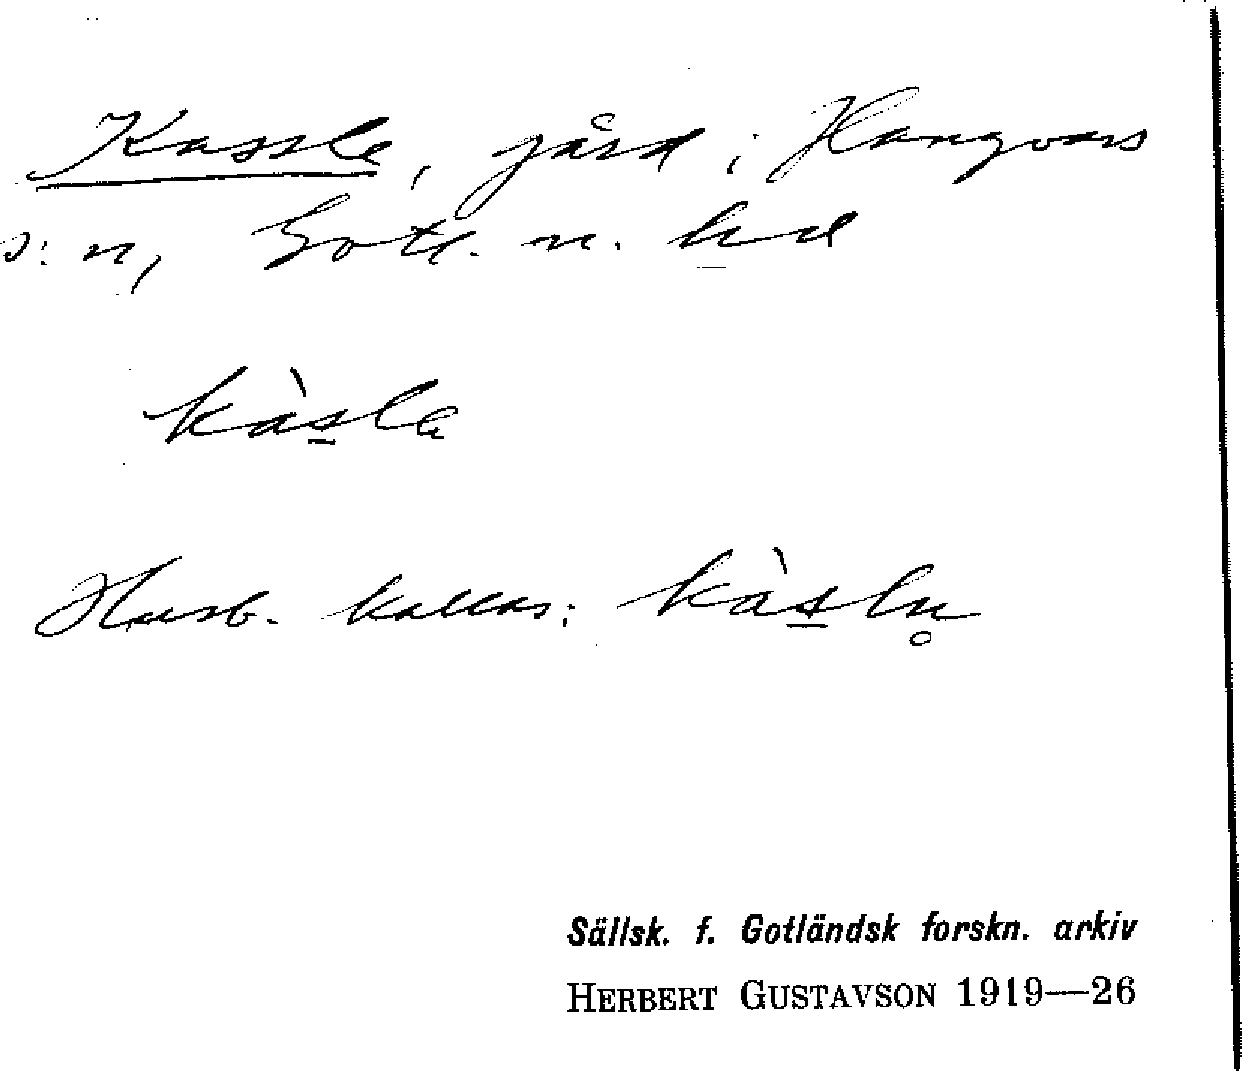 Kassle, gård i Hangvars
s:n, Gotl. n. hd
kàs̲la
Husb. kallas: kàs̲ln̥
Sällsk. f. Gotländsk forskn. arkiv
HERBERT GUSTAVSON 1919—26